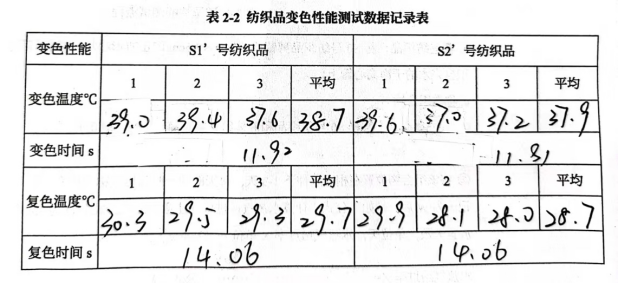 表 2-2 纺织品变色性能测试数据记录表
变色性能 S1’号纺织品 S2’号纺织品
变色温度℃ 1 2 3 平均 1 2 3 平均
39.0 39.4 37.6 38.7 39.6 37.0 37.2 37.9
变色时间 s 11.92 11.81
复色温度℃ 1 2 3 平均 1 2 3 平均
30.3 29.5 29.3 29.7 29.9 28.1 28.0 28.7
复色时间 s 14.06 14.06